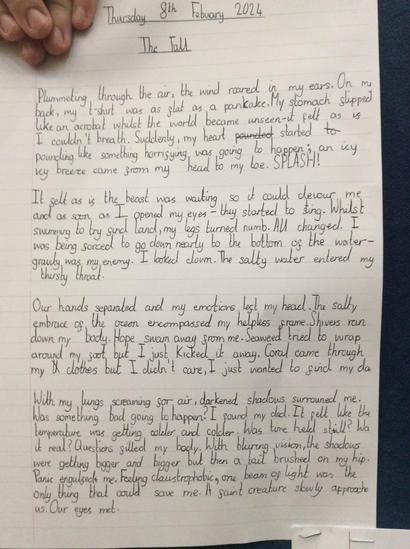 Thursday 8th Febuary 2024
The Fall
Plummeting through the air, the wind roared in my ears. On my
back, my t-shirt was as flat as a pancake. My stomach flipped
like an acrobat whilst the world became unseen-it felt as if
I couldn't breath. Suddenly, my heart pounded started to
pounding like something horrifying was going to happen; an icy
icy breeze came from my head to my toe. SPLASH!
It felt as if the beast was waiting so it could devour me
and as soon as I opened my eyes - they started to sting. Whilst
swimming to try find land, my legs turned numb. All changed. I
was being forced to go down nearly to the bottom of the water-
gravity was my enemy. I looked down. The salty water entered my
thirsty throat.
Our hands separated and my emotions left my head. The salty
embrace of the ocean encompassed my helpless frame. Shivers ran
down my body. Hope swam away from me. Seaweed tried to wrap
around my foot but I just kicked it away. Coral came through
my clothes but I didn't care, I just wanted to find my da
With my lungs screaming for air, darkened shadows surrouned me.
Was something bad going to happen? I found my dad. It felt like the
temperature was getting colder and colder. Was time held still? Wa
it real? Questions filled my body. With bluring vision, the shadows
were getting bigger and bigger but then a tail brushed on my hip.
Panic engulfed me. Feeling claustrophobic, one beam of light was the
only thing that could save me. A faint creature slowly approache
us. Our eyes met.